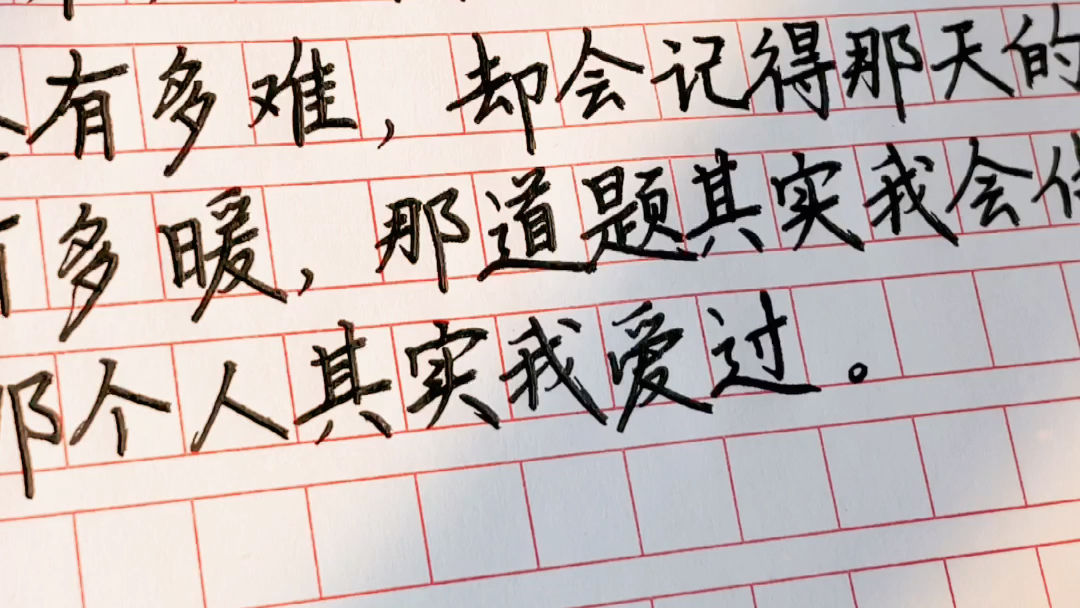 有多难，却会记得那天的
多暖，那道题其实我会
那个人其实我爱过。